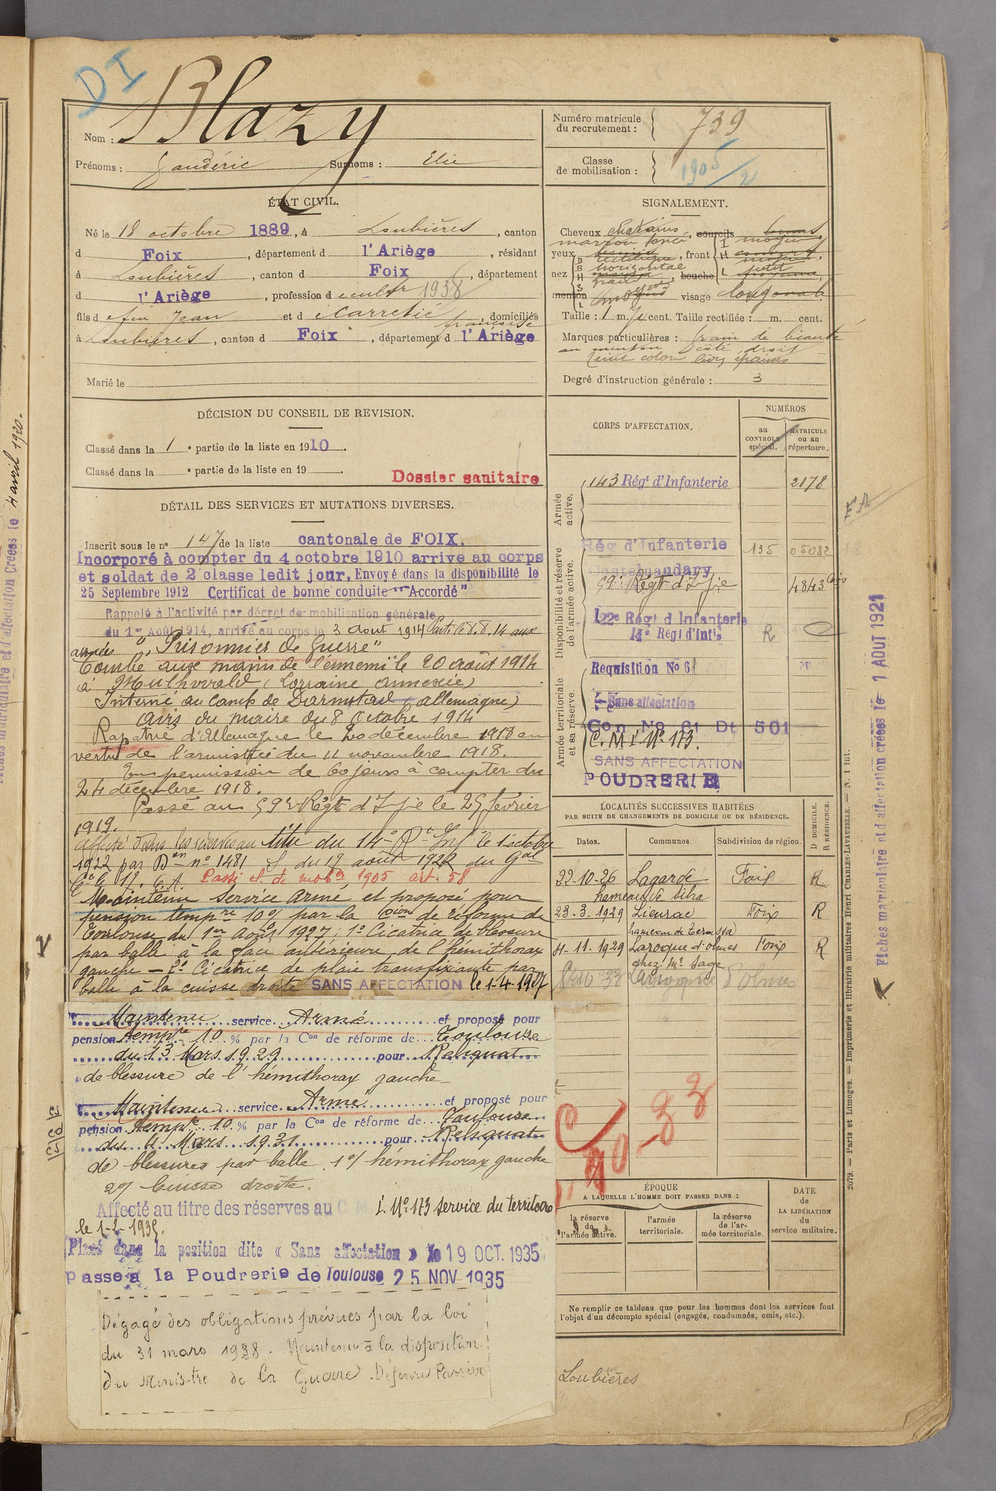 DI
Nom : Blazy
Prénoms : Gaudérie Surnoms : Elie
Numéro matricule du recrutement : 739
Classe de mobilisation : 1905/2
ÉTAT CIVIL.
Né le 18 octobre 1889, à Loubières, canton
d Foix, département d l'Ariège, résidant
à Loubières, canton d Foix, département
d l'Ariège, profession d cultr 1938
fils d feu Jean et d Marretié françoise, domiciliés
à Loubières, canton d Foix, département d l'Ariège
Marié le
SIGNALEMENT.
Cheveux châtains, sourcils
marron foncé
yeux, front moyen
nez horizontal, bouche petit
menton moyen visage
Taille : 1 m. cent. Taille rectifiée : m. cent.
Marques particulières : grain de beauté
au menton côté droit
Degré d'instruction générale : 3
DÉCISION DU CONSEIL DE REVISION.
Classé dans la 1 e partie de la liste en 1910.
Classé dans la e partie de la liste en 19
Dossier sanitaire
DÉTAIL DES SERVICES ET MUTATIONS DIVERSES.
Inscrit sous le n° 147 de la liste cantonale de FOIX.
Incorporé à compter du 4 octobre 1910 arrive au corps
et soldat de 2e classe ledit jour. Envoyé dans la disponibilité le
25 Septembre 1912 Certificat de bonne conduite "Accordé"
Rappelé à l'activité par décret de mobilisation générale
du 1er Août 1914, arrivé au corps le 3 Aout 1914 Parti le 8.8.14 aux
armées "Prisonnier de guerre"
Tombé aux mains de l'ennemi le 20 août 1914
à (Lorraine annexée)
Interné au camp de Darmstad (allemagne)
avis du maire du 8 octobre 1914
Rapatrié d'Allemagne le 20 décembre 1918 en
vertu de l'armistice du 11 novembre 1918.
En permission de 60 jours à compter du
24 décembre 1918.
Passé au 59e Régt d'Jie le 25 février
1919.
Affecté dans les réserves au titre du 14e Rt Inf le 1 octobre
1922 par Don n° 1481 du 17 août 1922 du Gal
Passé cl. de mobon 1905 art. 58
Maintenu Service armé et proposé pour
pension tempre 10% par la Con de réforme de
Toulouse du 1er août 1927 : 1° Cicatrice de blessure
par balle à la face antérieure de l'hémithorax
gauche - 2° Cicatrice de plaie transfixiante par
balle à la cuisse droite SANS AFFECTATION le 1-4-1927
Maintenu service Armé et proposé pour
pension tempre 10 % par la Con de réforme de Toulouse
du 13 Mars 1929 pour Reliquat
de blessure de l'hémithorax gauche
Maintenu service Armé et proposé pour
pension tempre 10 % par la Con de réforme de Toulouse
du 4 Mars 1931 pour Reliquat
de blessures par balle 1°/ hémithorax gauche
2°/ Cuisse droite.
Affecté au titre des réserves au C. M. L' N° 173 service du territoire
le 1-2-1935.
Placé dans la position dite « Sans affectation » le 19 OCT. 1935
passe à la Poudrerie de Toulouse 25 NOV 1935
Dégagé des obligations prévues par la loi
du 31 mars 1928. Maintenu à la disposition
du Ministre de la Guerre. Défense Passive
CORPS D'AFFECTATION.
NUMÉROS
au CONTRÔLE spécial.
MATRICULE ou au répertoire.
Armée active.
143 Régt d'Infanterie 2178
Disponibilité et réserve de l'armée active.
Rég d'Infanterie 135 05082
Castelnaudary
59e Régt d'Jie 4843
122e Régt d'Infanterie
14e Régt d'Infie R
Armée territoriale et sa réserve.
Requisition No 6
Sans affectation
Con No 61 Dt 501
C.M.I. N° 173.
SANS AFFECTATION
POUDRERIE
LOCALITÉS SUCCESSIVES HABITÉES
PAR SUITE DE CHANGEMENTS DE DOMICILE OU DE RÉSIDENCE.
Dates. Communes Subdivision de région. D. DOMICILE. R. RÉSIDENCE.
22-10-26 Lagarde Foix R
hameau de Sibra
23.3.1929 Lieurac Foix R
4-11-1929 Laroque d'olmes Foix R
chez Mr Sage
Laroque d'Olmes
ÉPOQUE
A LAQUELLE L'HOMME DOIT PASSER DANS :
la réserve de l'armée active.
l'armée territoriale.
la réserve de l'armée territoriale.
DATE de LA LIBÉRATION du service militaire.
Ne remplir ce tableau que pour les hommes dont les services font
l'objet d'un décompte spécial (engagés, condamnés, omis, etc.).
Loubières
Fiches matriculaire et d'affectation créées le 1 AOUT 1921
2079. — Paris et Limoges. — Imprimerie et librairie militaires Henri CHARLES-LAVAUZELLE. — N. 1 bis.
4 avril 1920.